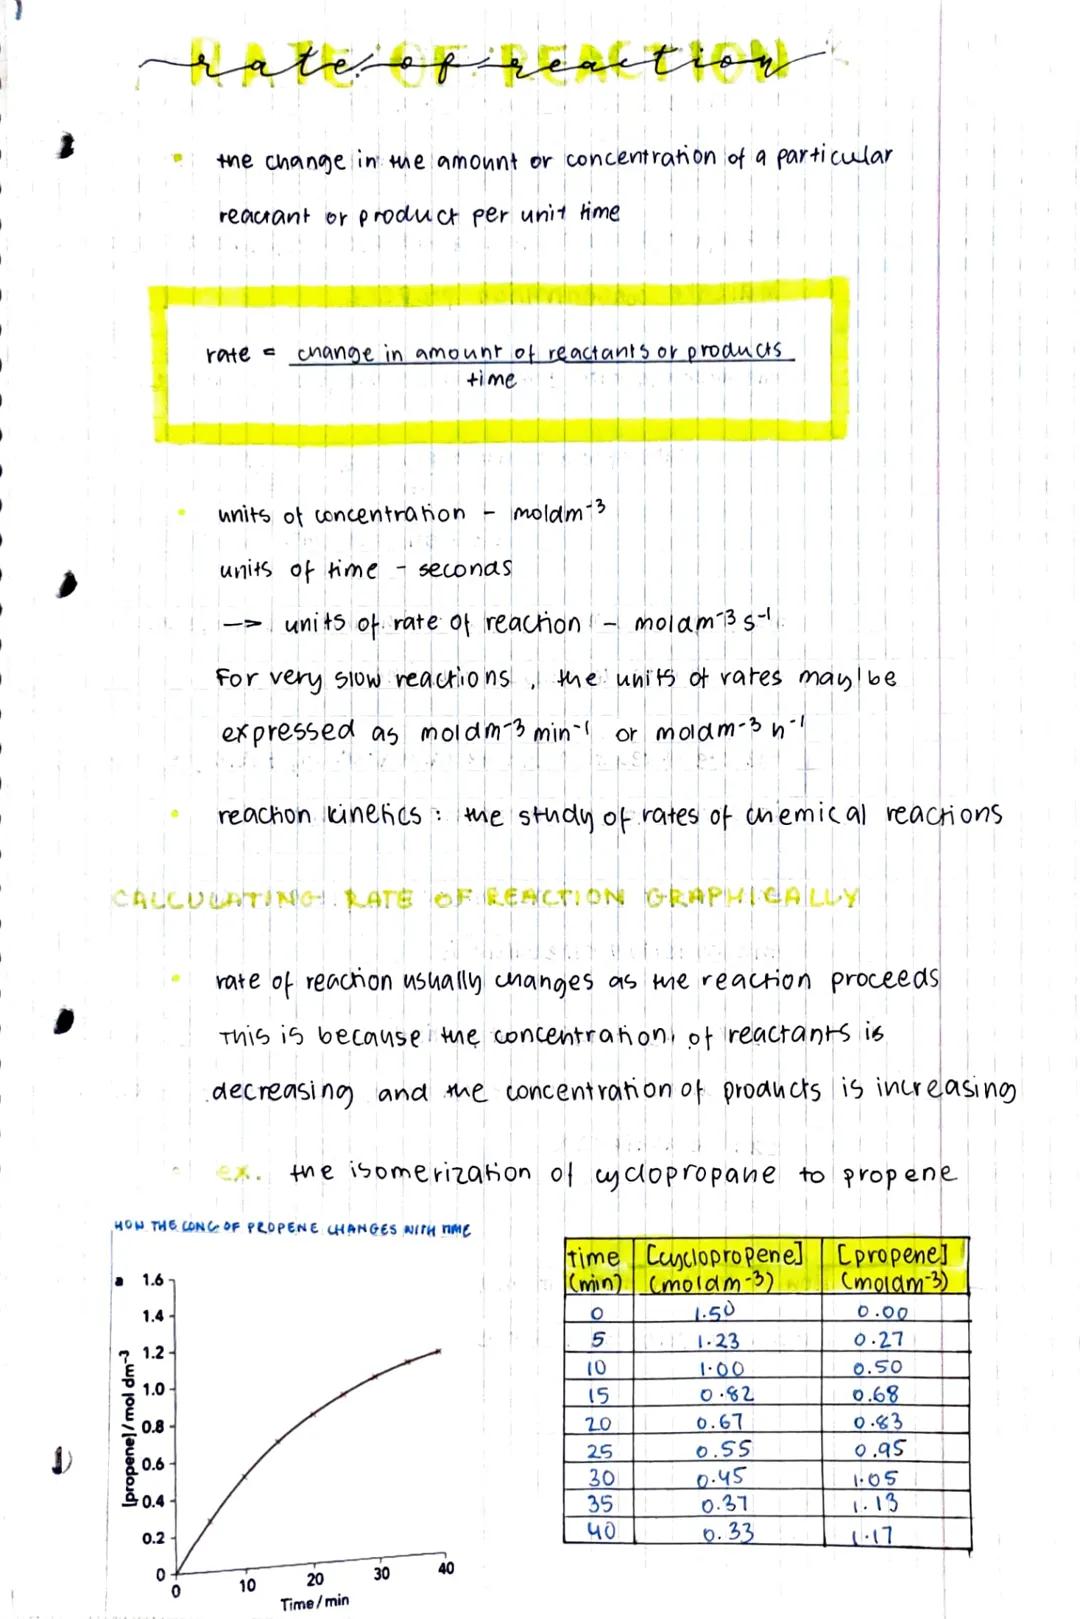 RATE OF REACTION
rate of reaction
the change in the amount or concentration of a particular
reactant or product per unit time
rate = change in amount of reactants or products
time
units of concentration - moldm-3
units of time - seconds
--> units of rate of reaction - moldm-3 s-1
For very slow reactions, the units of rates may be
expressed as moldm-3 min-1 or moldm-3 h-1
reaction kinetics: the study of rates of chemical reactions
CALCULATING RATE OF REACTION GRAPHICALLY
rate of reaction usually changes as the reaction proceeds
This is because the concentration of reactants is
decreasing and the concentration of products is increasing
ex. the isomerization of cyclopropane to propene
HOW THE CONC OF PROPENE CHANGES WITH TIME
a
1.6
1.4
1.2
1.0
0.8
0.6
0.4
0.2
0
[propene]/mol dm-3
0 10 20 30 40
Time/min
time [cyclopropene] [propene]
(min) (moldm-3) (moldm-3)
0 1.50 0.00
5 1.23 0.27
10 1.00 0.50
15 0.82 0.68
20 0.67 0.83
25 0.55 0.95
30 0.45 1.05
35 0.37 1.13
40 0.33 1.17